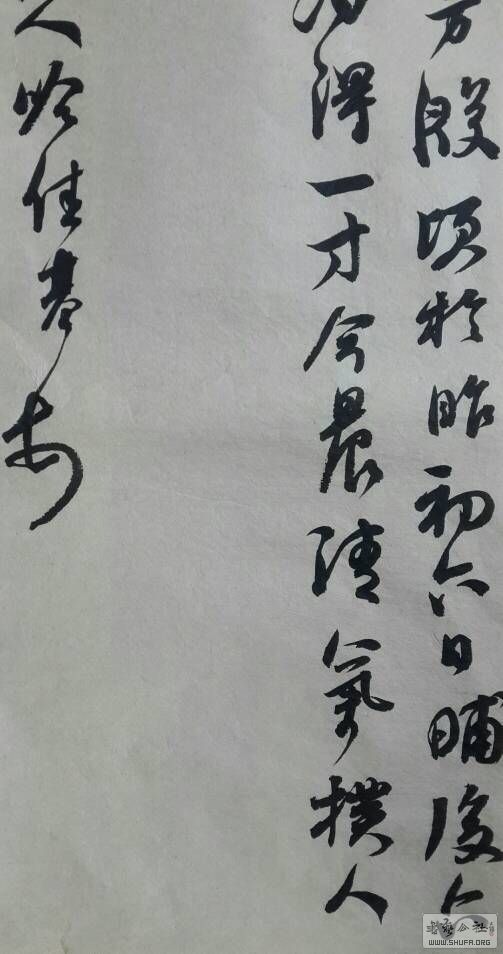 方殷頃於昨初六日晡後
得一寸今晨清氣撲人
人吟佳
書法公社
WWW.SHUFA.ORG